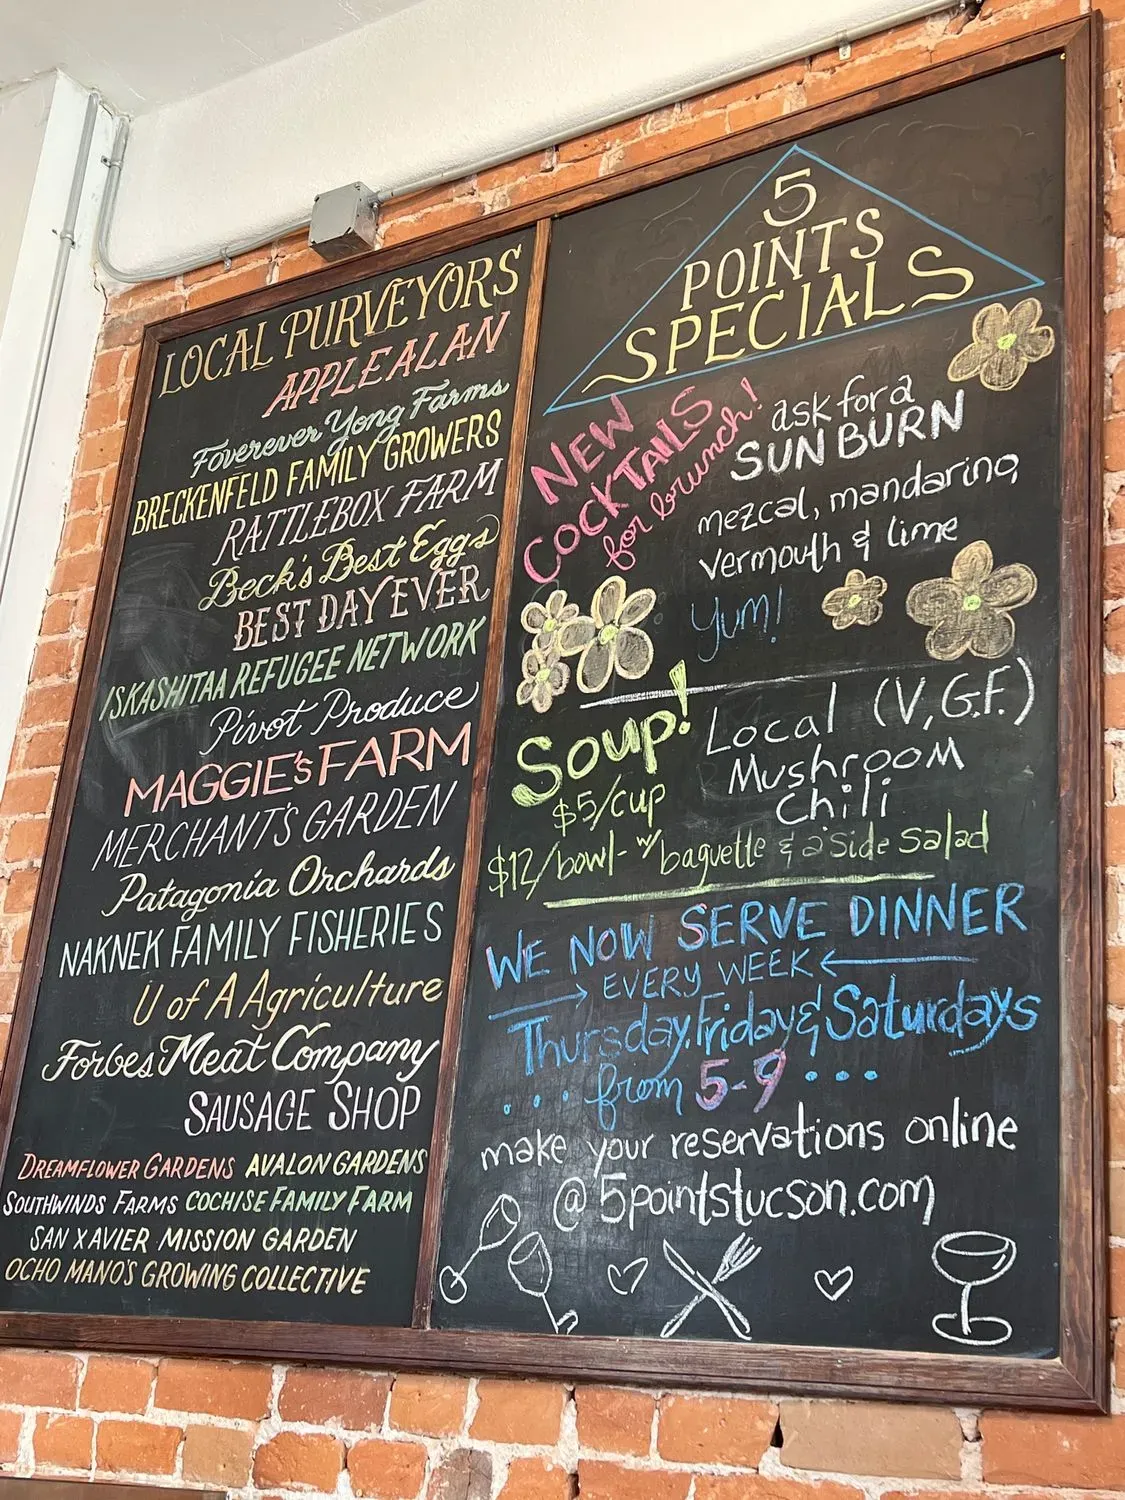 LOCAL PURVEYORS
APPLEALAN
Foverever Yong Farms
BRECKENFELD FAMILY GROWERS
RATTLEBOX FARM
Beck's Best Eggs
BEST DAY EVER
ISKASHITAA REFUGEE NETWORK
Pivot Produce
MAGGIE'S FARM
MERCHANT'S GARDEN
Patagonia Orchards
NAKNEK FAMILY FISHERIES
U of A Agriculture
Forbes Meat Company
SAUSAGE SHOP
DREAMFLOWER GARDENS AVALON GARDENS
SOUTHWINDS FARMS COCHISE FAMILY FARM
SAN XAVIER MISSION GARDEN
OCHO MANO'S GROWING COLLECTIVE
5
POINTS
SPECIALS
NEW
COCKTAILS
for brunch!
ask for a
SUN BURN
mezcal, mandarino,
vermouth & lime
Yum!
Soup!
$5/cup
Local (V, G.F.)
Mushroom
Chili
$12/bowl- w/baguette & a side salad
WE NOW SERVE DINNER
EVERY WEEK
Thursday, Friday & Saturdays
... from 5-9 ...
make your reservations online
@ 5pointstucson.com